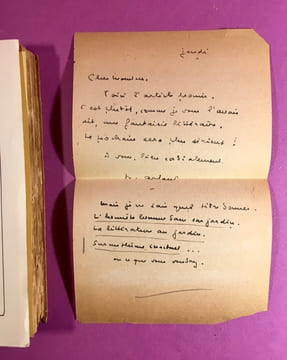 jeudi
Cher Monsieur.
Voici l'article promis.
C'est plutôt, comme je vous l'avais
dit, une fantaisie littéraire.
Le prochain sera plus sérieux !
à vous, bien cordialement.
mais je ne sais quel titre donner.
L'honnête homme dans son jardin.
La littérature au jardin.
Sur un thème éternel ...
ou ce que vous voudrez.